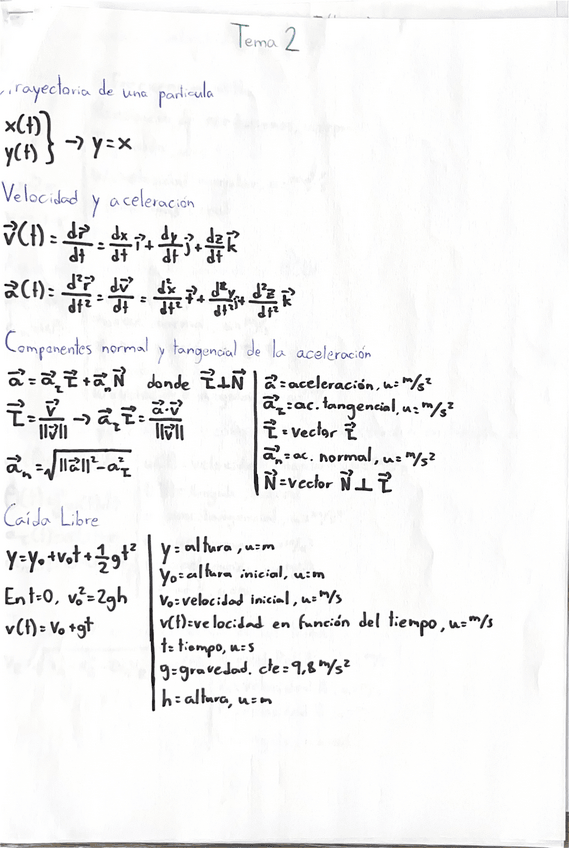 Tema 2
Trayectoria de una partícula
x(t)
y(t) } → y=x
Velocidad y aceleración
v⃗(t) = dr⃗/dt = dx/dt i⃗ + dy/dt j⃗ + dz/dt k⃗
a⃗(t) = d²r⃗/dt² = dv⃗/dt = d²x/dt² i⃗ + d²y/dt² j⃗ + d²z/dt² k⃗
Componentes normal y tangencial de la aceleración
a⃗ = a⃗_τ τ⃗ + a⃗_n N⃗ donde τ⃗⊥N⃗
τ⃗ = v⃗/||v⃗|| → a⃗_τ τ⃗ = a⃗·v⃗/||v⃗||
a⃗_n = √(||a⃗||² - a²_τ)
a⃗ = aceleración, u = m/s²
a⃗_τ = ac. tangencial, u = m/s²
τ⃗ = vector τ⃗
a⃗_n = ac. normal, u = m/s²
N⃗ = vector N⃗ ⊥ τ⃗
Caída Libre
y = y₀ + v₀t + 1/2 gt²
En t=0, v₀² = 2gh
v(t) = v₀ + gt
y = altura, u = m
y₀ = altura inicial, u = m
v₀ = velocidad inicial, u = m/s
v(t) = velocidad en función del tiempo, u = m/s
t = tiempo, u = s
g = gravedad. cte = 9,8 m/s²
h = altura, u = m